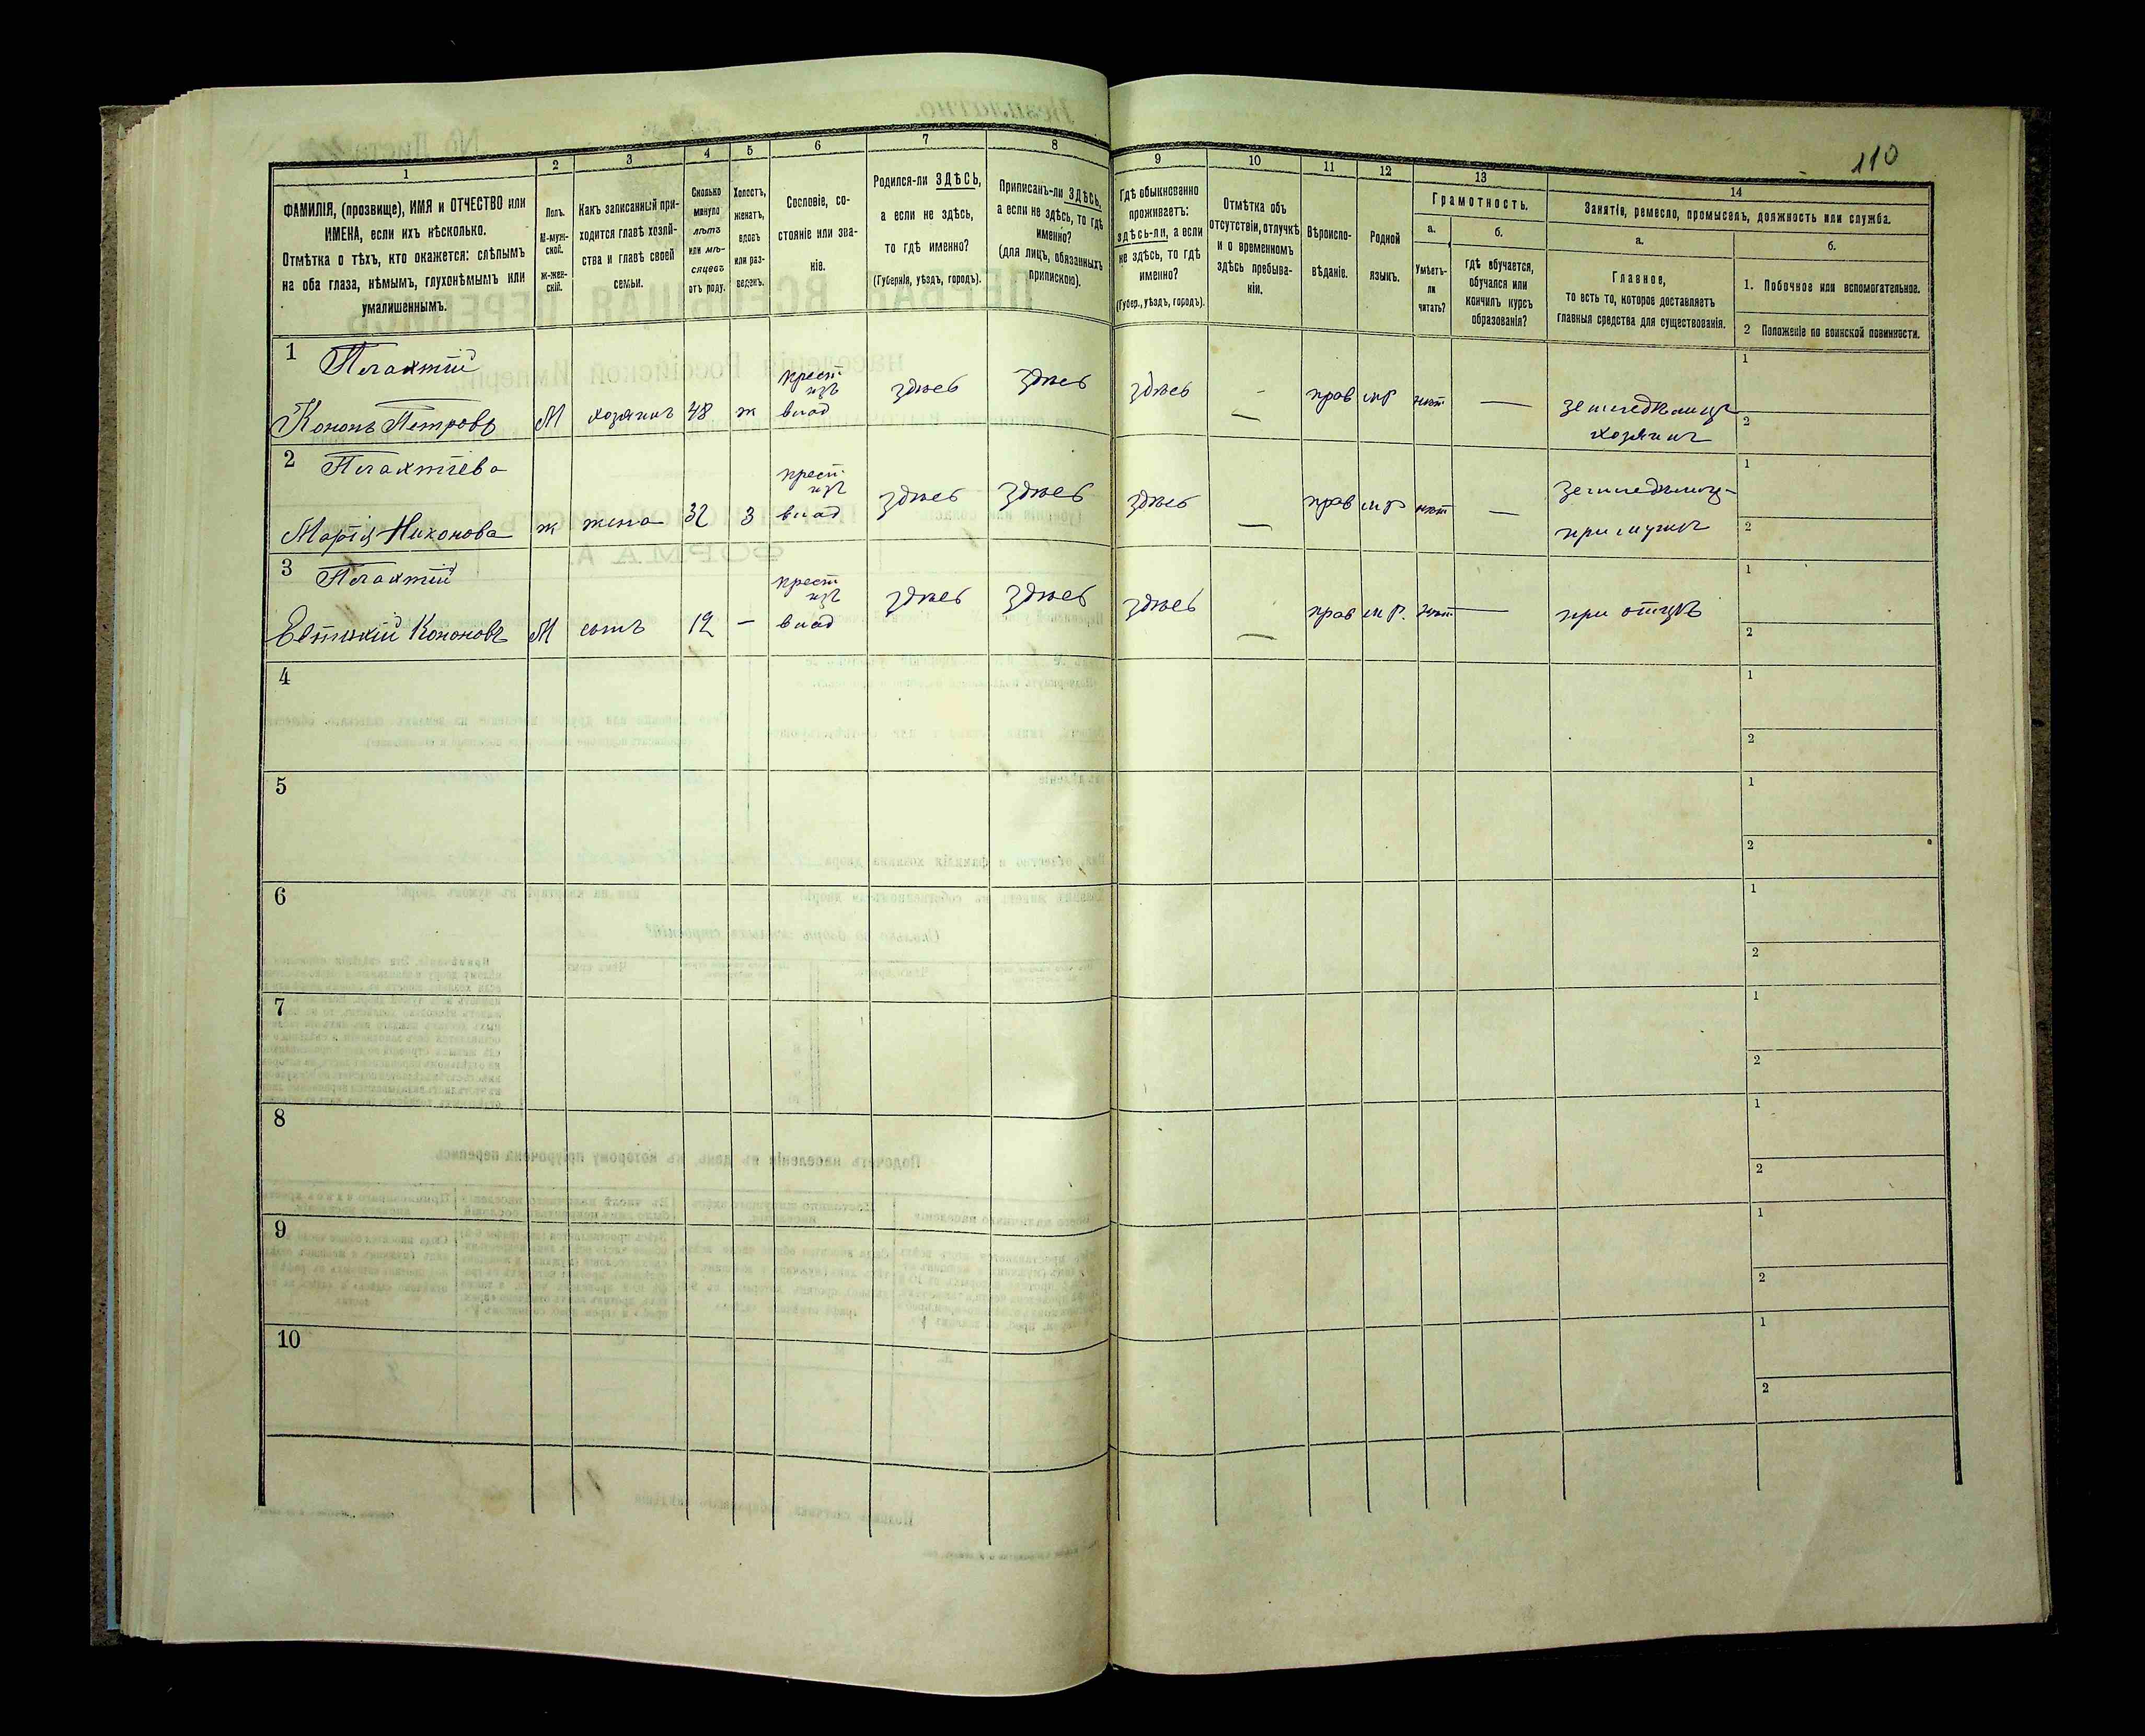 110
1
ФАМИЛІЯ, (прозвище), ИМЯ и ОТЧЕСТВО или
ИМЕНА, если ихъ нѣсколько.
Отмѣтка о тѣхъ, кто окажется: слѣпымъ
на оба глаза, нѣмымъ, глухонѣмымъ или
умалишеннымъ.
2
Полъ.
М-муж-
ской.
Ж-жен-
скій.
3
Какъ записанный при-
ходится главѣ хозяй-
ства и главѣ своей
семьи.
4
Сколько
минуло
лѣтъ
или мѣ-
сяцевъ
отъ роду.
5
Холостъ,
женатъ,
вдовъ
или раз-
веденъ.
6
Сословіе, со-
стояніе или зва-
ніе.
7
Родился-ли ЗДѢСЬ,
а если не здѣсь,
то гдѣ именно?
(Губернія, уѣздъ, городъ).
8
Приписанъ-ли ЗДѢСЬ,
а если не здѣсь, то гдѣ
именно?
(для лицъ, обязанныхъ
припискою).
9
Гдѣ обыкновенно
проживаетъ:
здѣсь-ли, а если
не здѣсь, то гдѣ
именно?
(Губер., уѣздъ, городъ).
10
Отмѣтка объ
отсутствіи, отлучкѣ
и о временномъ
здѣсь пребыва-
ніи.
11
Вѣроиспо-
вѣданіе.
12
Родной
языкъ.
13
Грамотность.
а.
Умѣетъ-
ли
читать?
б.
гдѣ обучается,
обучался или
кончилъ курсъ
образованія?
14
Занятіе, ремесло, промыселъ, должность или служба.
а.
Главное,
то есть то, которое доставляетъ
главныя средства для существованія.
б.
1. Побочное или вспомогательное.
2 Положеніе по воинской повинности.
1 Плахтій
Кононъ Петровъ М хозяинъ 48 ж крест изъ влад здѣсь здѣсь здѣсь — прав мр нѣт — земледѣлецъ хозяинъ
1
2
2 Плахтіева
Марія Никонова ж жена 32 З крест изъ влад здѣсь здѣсь здѣсь — прав мр нѣт — земледѣлец- при мужѣ
1
2
3 Плахтій
Евтихій Кононовъ М сынъ 12 — крест изъ влад здѣсь здѣсь здѣсь — прав мр. нѣт — при отцѣ
1
2
4
1
2
5
1
2
6
1
2
7
1
2
8
1
2
9
1
2
10
1
2